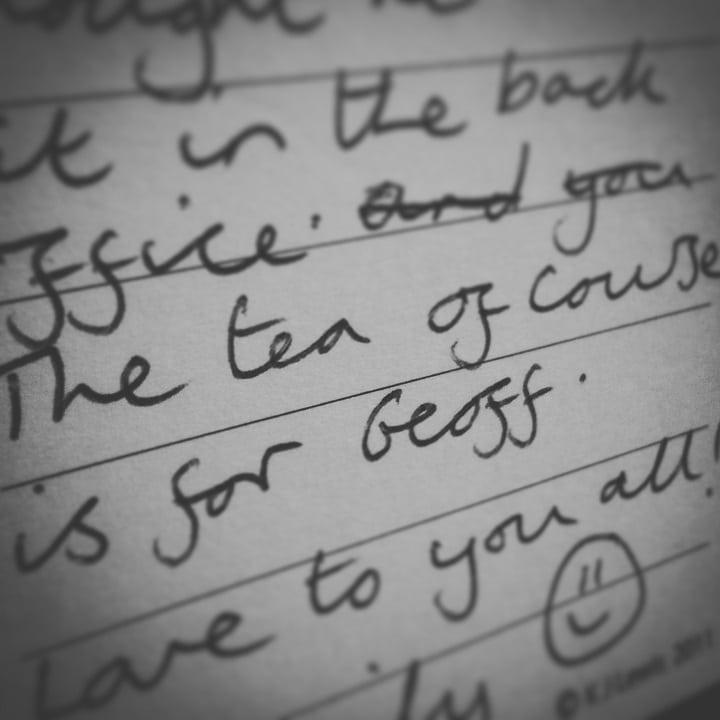 it in the back
office. and you
The tea of course
is for Geoff.
Love to you all!
© K J Lewis 2011